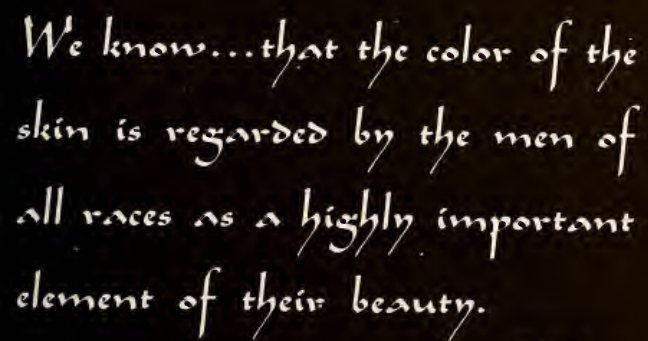 We know...that the color of the
skin is regarded by the men of
all races as a highly important
element of their beauty.